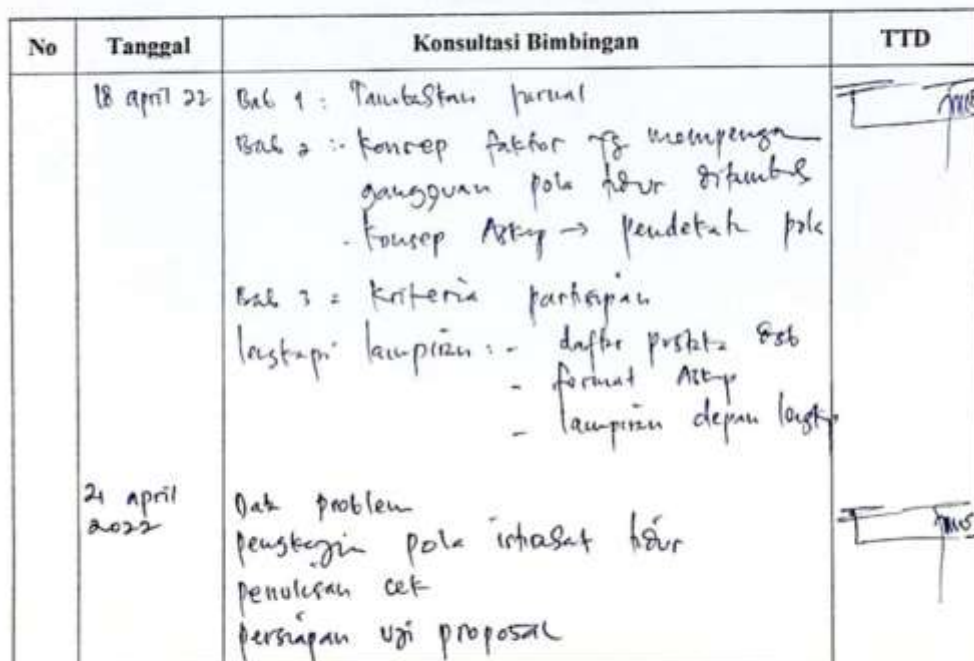 No Tanggal Konsultasi Bimbingan TTD
18 april 22 Bab 1 : Tambahkan jurnal
Bab 2 : - Konsep faktor yg mempenga
gangguan pola tidur ditambah
- Konsep Askep → pendekatan pola
Bab 3 = Kriteria partisipan
lengkapi lampiran : - daftar dsb
- format Askep
- lampiran depan lengkap
21 april
2022
Data problem
pengkajian pola istirahat tidur
penulisan cek
persiapan uji proposal